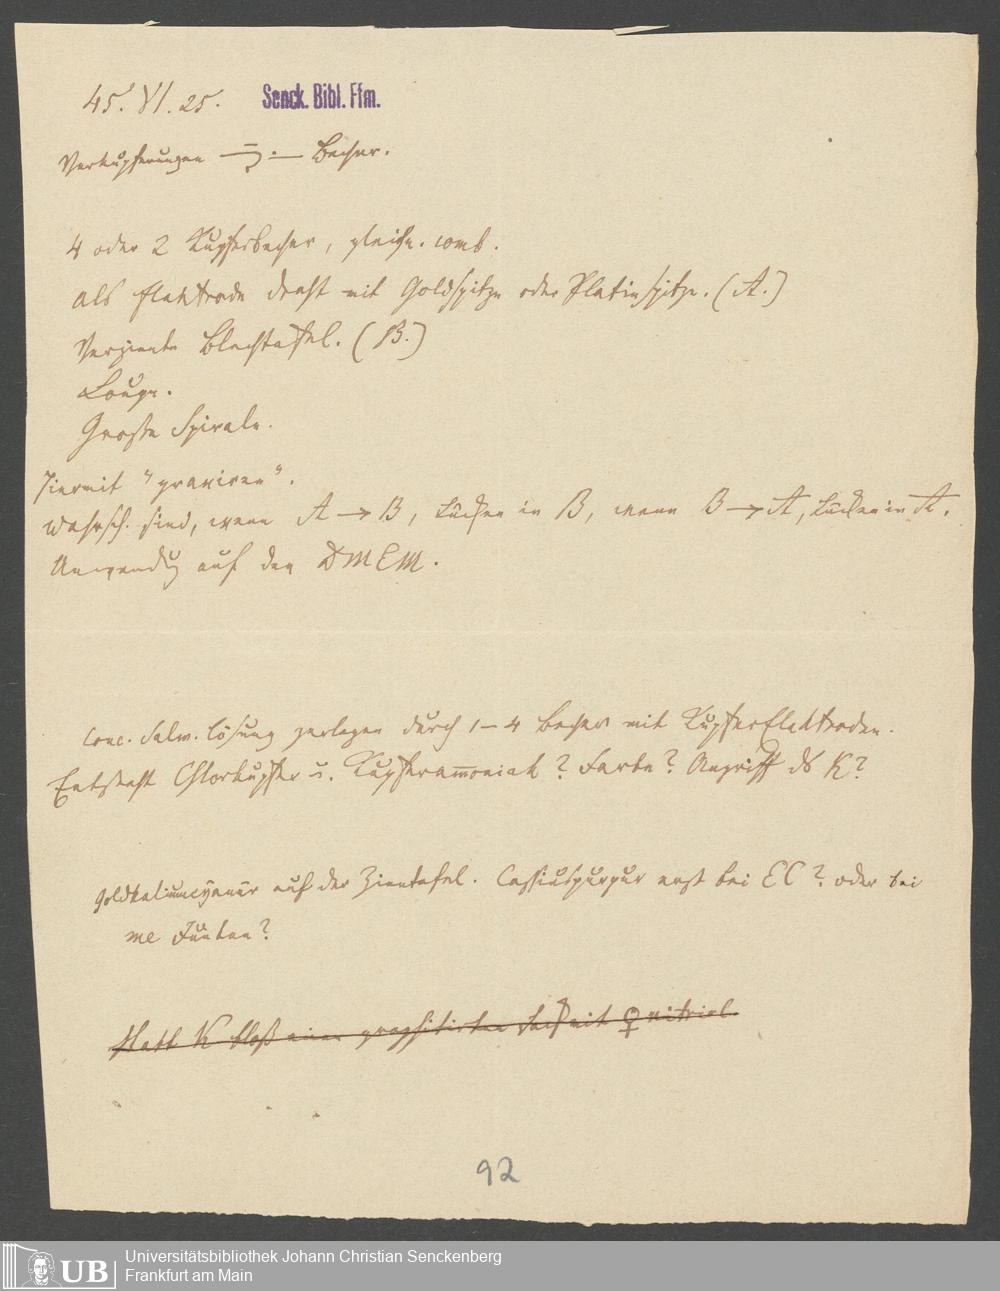 45. VI. 25.
Senck. Bibl. Ffm.
Verkupferungen Becher.
4 oder 2 Kupferbecher, gleichn. comb.
als Elektrode Draht mit Goldspitze oder Platinspitze. (A.)
Verzinnte Blechtafel. (B.)
Loupe.
Große Spirale.
Hiermit "graviren".
Wahrsch. sind, wenn A → B, Lücken in B, wenn B → A, Lücken in A.
Anwendg auf den DMEM.
Conc. Salm. lösung zerlegen durch 1–4 Becher mit KupferElektroden.
Entsteht Chlorkupfer u. Kupferam̅oniak? Farbe? Angriff ds K?
Goldkaliumcyanür auf der Zinntafel. Cassiuspurpur erst bei EC? oder bei
me Funken?
statt K bloß einen graphitirten mit ♀ vitriol.
92
UB
Universitätsbibliothek Johann Christian Senckenberg
Frankfurt am Main